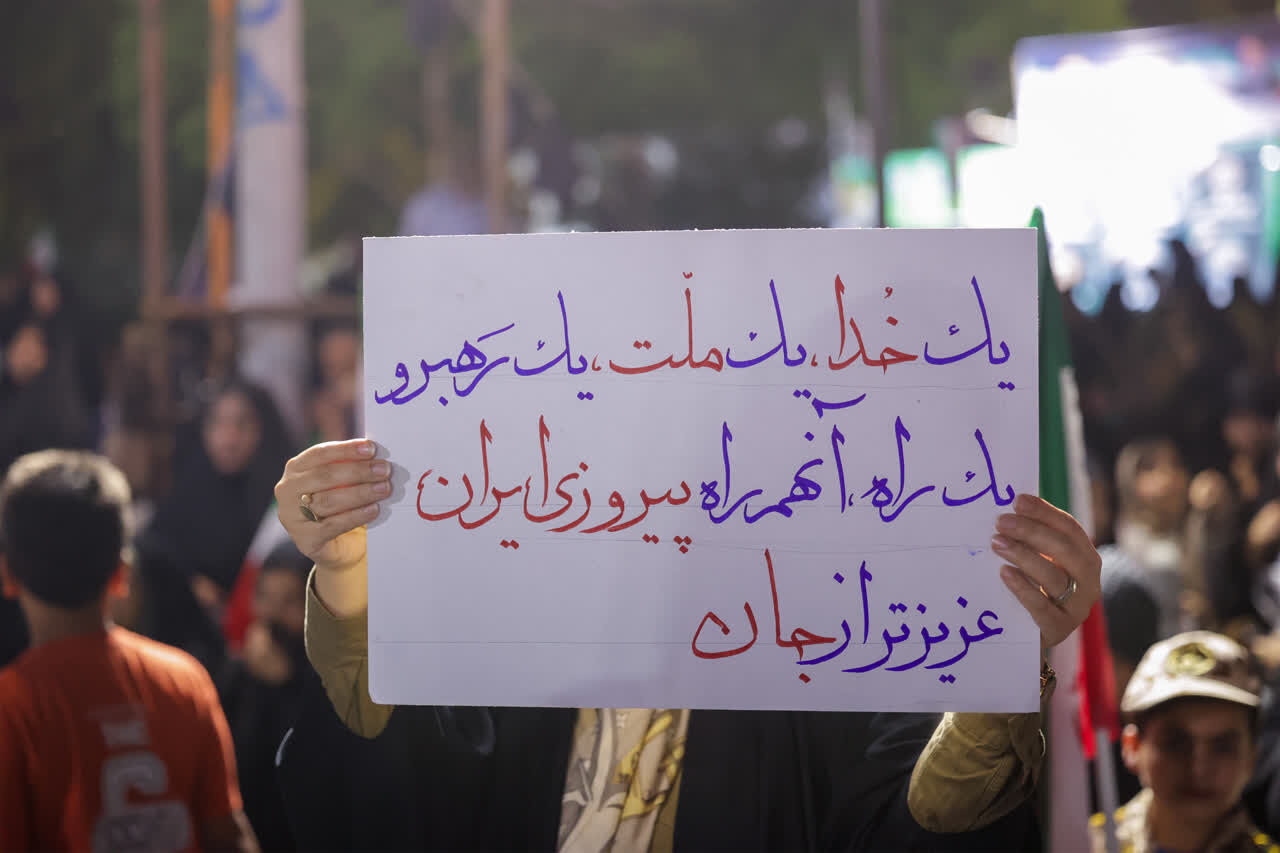 یك خُدا، یك ملّت، یك رَهبر و
یك راه، آنهم راه پیروزی ایران
عزیزتر از جان